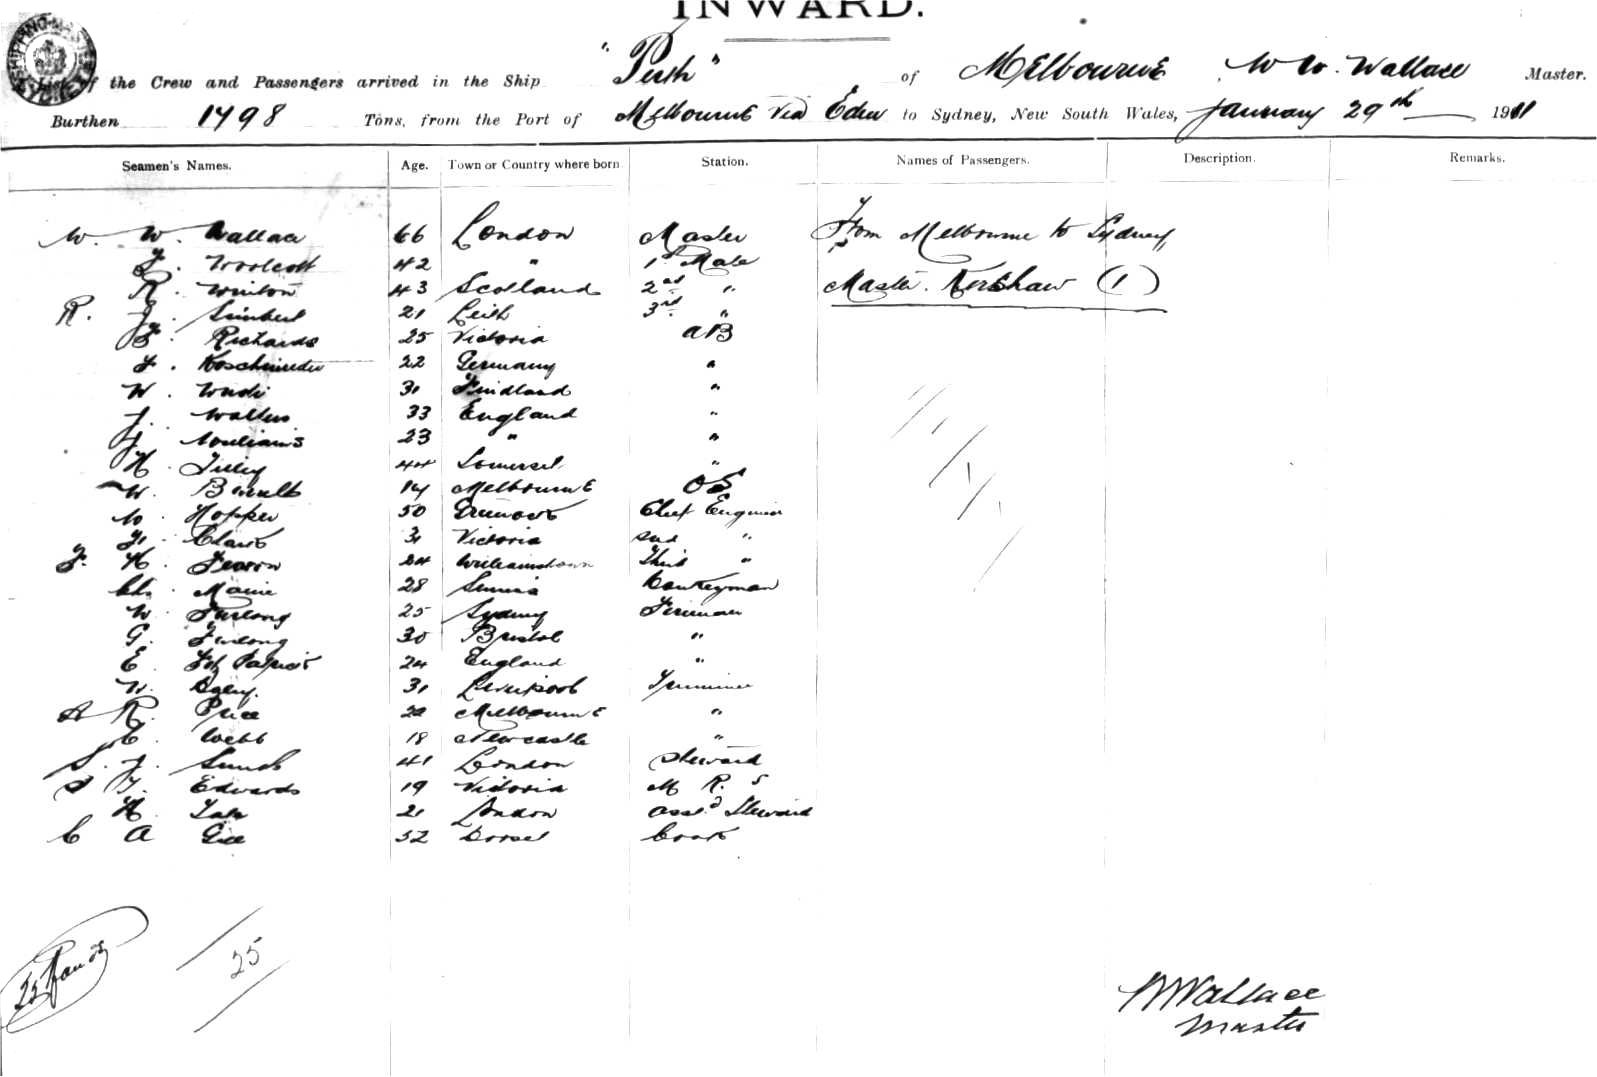 INWARD.
of the Crew and Passengers arrived in the Ship "Perth" of Melbourne, W W. Wallace Master.
Burthen 1798 Tons, from the Port of Melbourne via Eden to Sydney, New South Wales, January 29th 1911
Seamen's Names. Age. Town or Country where born Station. Names of Passengers. Description. Remarks.
W. W. Wallace 66 London Master From Melbourne to Sydney
Woolcott 42 " 1st Mate
R. Winton 43 Scotland 2nd " Master. Kershaw (1)
R. J. 21 Leith 3rd "
Richards 25 Victoria AB
22 Germany "
W. 31 Findland "
J. Walters 33 England "
J. Williams 23 " "
H. Tilley 44 Somerset "
W. 14 Melbourne OS
W. Hopper 50 Chief Engineer
Clark 31 Victoria 2nd "
F. H. Fearon 24 Williamstown Third "
Ch. 28 Donkeyman
W. Furlong 25 Sydney Fireman
G. Furlong 30 Bristol "
E. Fitz Patrick 24 England "
W. 31 Liverpool Trimmer
A R. Price 22 Melbourne "
C. Webb 18 Newcastle "
S. J. 41 London Steward
Edwards 19 Victoria M R. S
H. 21 London Asst Steward
C A Gee 52 Dorset Cook
25
WWallace
Master